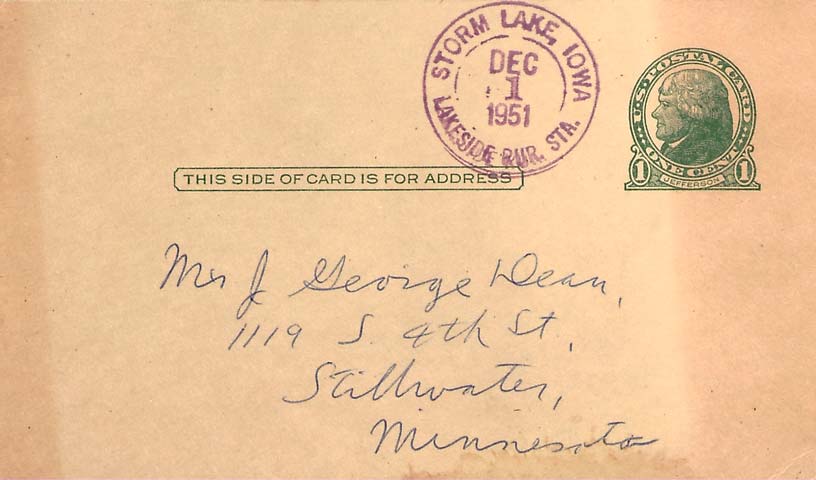 STORM LAKE, IOWA
DEC
1
1951
LAKESIDE RUR. STA.
U.S. POSTAL CARD
1 ONE CENT 1
JEFFERSON
THIS SIDE OF CARD IS FOR ADDRESS
Mr J. George Dean,
1119 S. 4th St,
Stillwater,
Minnesota